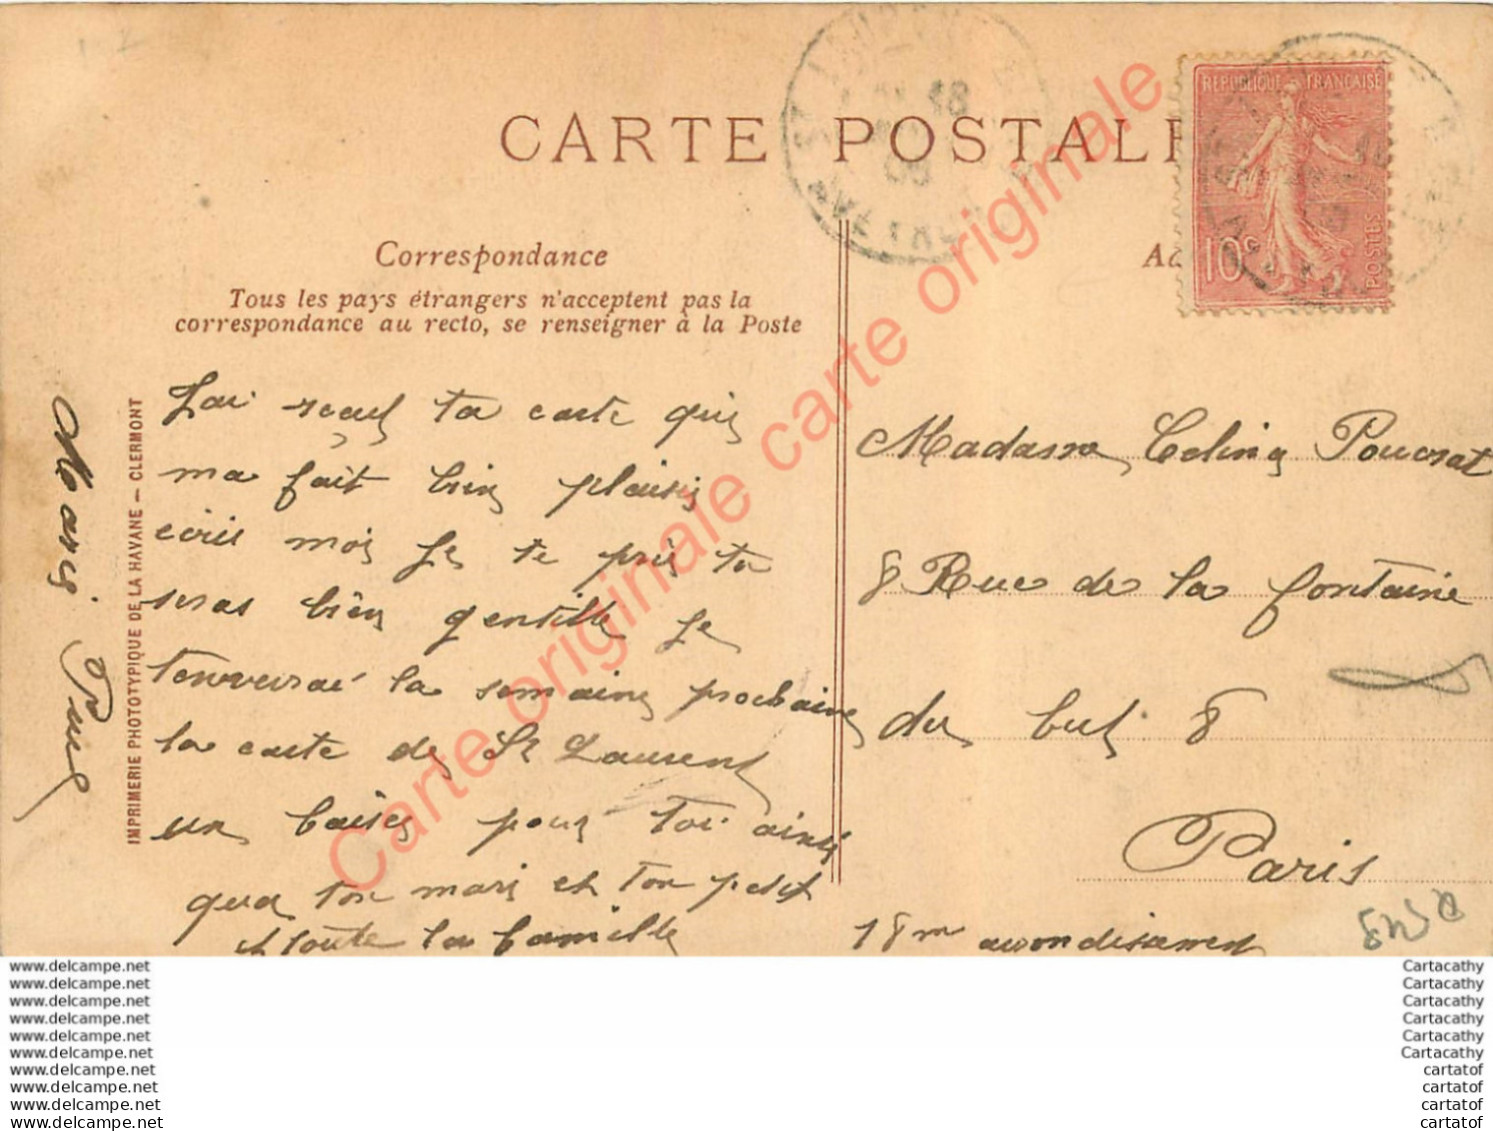 CARTE POSTALE
REPUBLIQUE FRANÇAISE
10c
POSTES
Correspondance
Tous les pays étrangers n'acceptent pas la
correspondance au recto, se renseigner à la Poste
J'ai reçus ta carte qui
ma fait bien plaisir
ecris moi Je te pris ta
seras bien gentille Je
tenverrai la semaine prochaine
la carte de St Laurent
un baiser pour toi ainsi
que ton mari et ton petit
et toute la famille
Marie
IMPRIMERIE PHOTOTYPIQUE DE LA HAVANE - CLERMONT
Madame Celina
8 Rue de la fontaine
du but 8
Paris
18m arrondisement
Carte originale carte originale
www.delcampe.net
www.delcampe.net
www.delcampe.net
www.delcampe.net
www.delcampe.net
www.delcampe.net
www.delcampe.net
www.delcampe.net
www.delcampe.net
www.delcampe.net
Cartacathy
Cartacathy
Cartacathy
Cartacathy
Cartacathy
Cartacathy
cartatof
cartatof
cartatof
cartatof